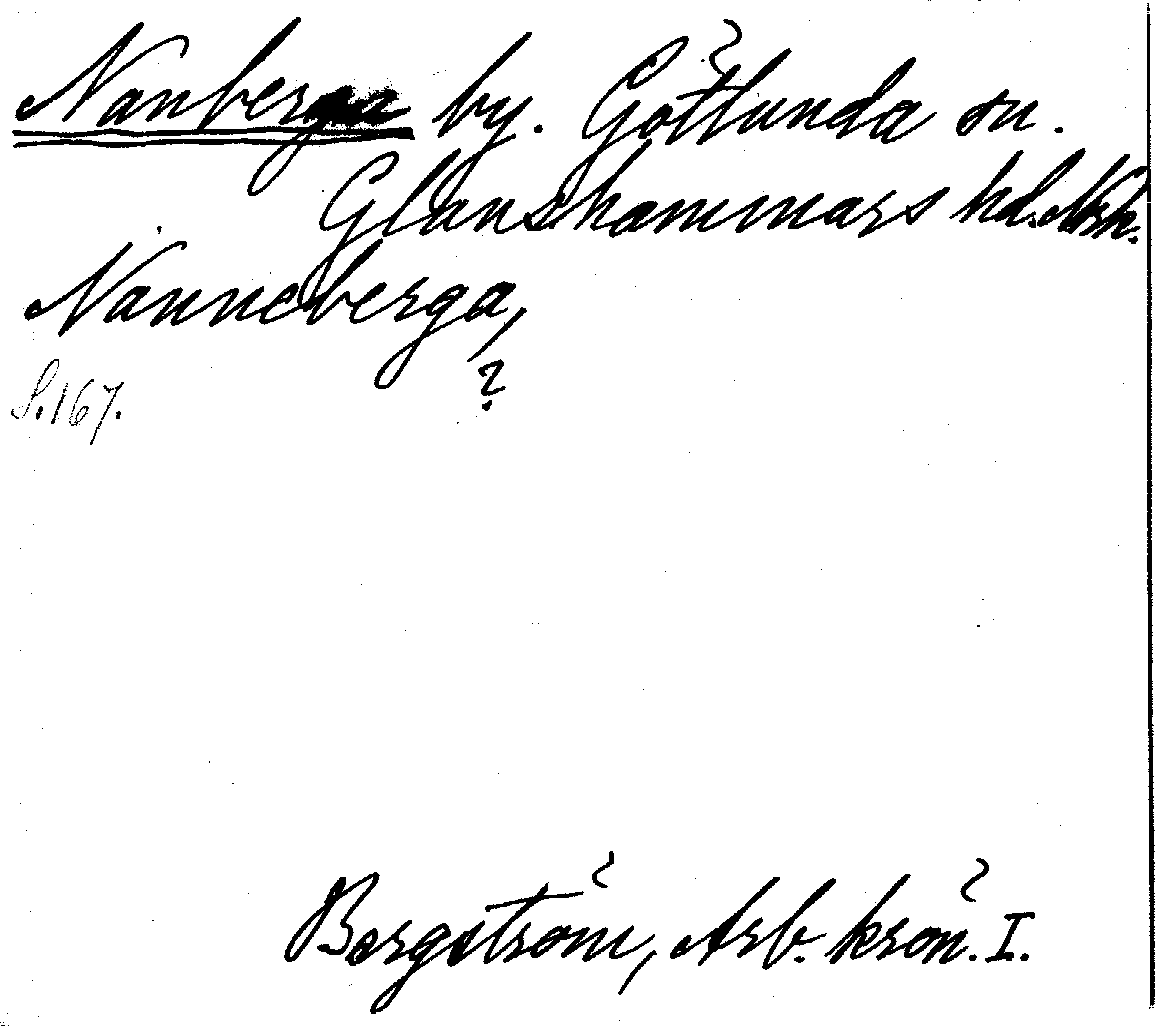 Nanberga by. Götlunda sn.
Glanshammars hd. Nrk.
Nanneberga,
?
S. 167.
Bergström, Arb. krön. I.